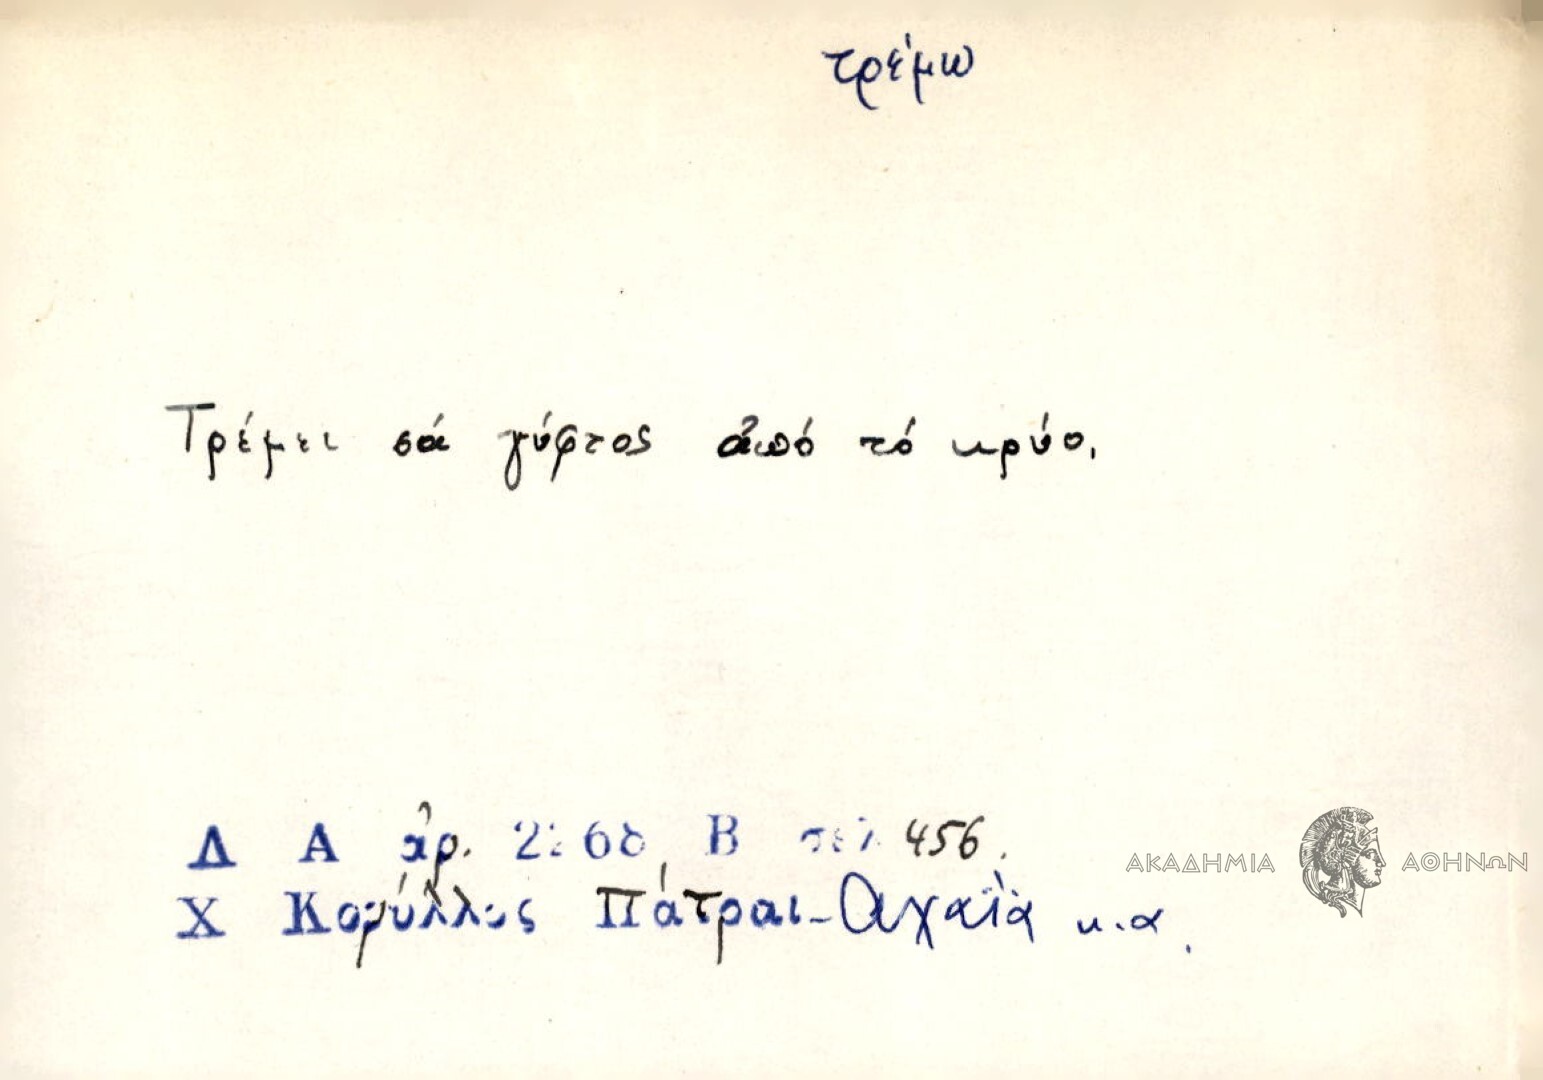 τρέμω
Τρέμει σά γύφτος ἀπό τό κρύο.
Δ Α ἀρ. Β σελ 456.
Χ Κορύλλος Πάτραι-Ἀχαΐα κ.α.
ΑΚΑΔΗΜΙΑ ΑΘΗΝΩΝ